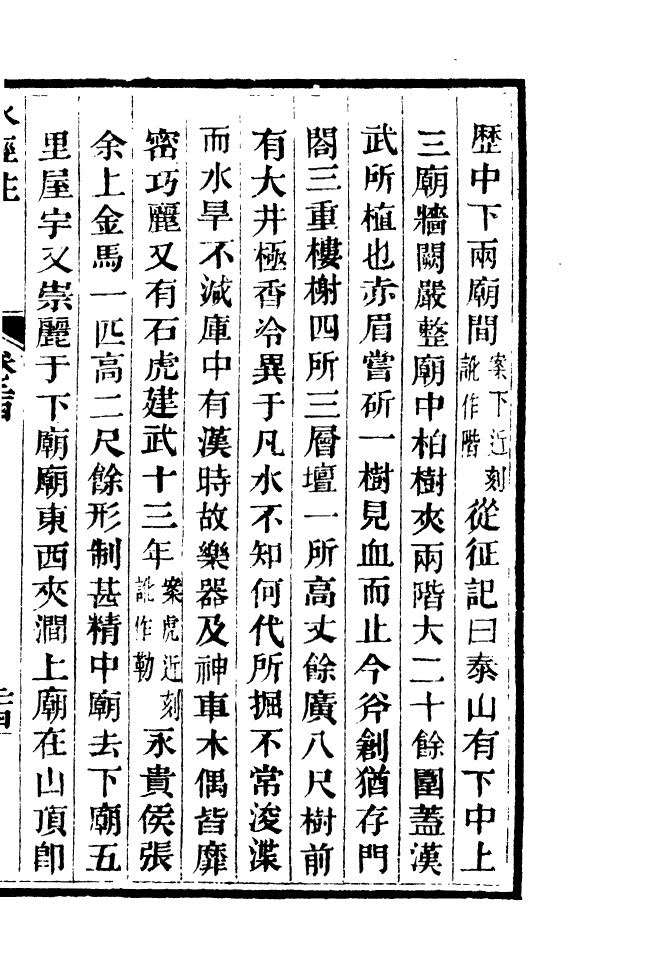 歷中下兩廟間案下近刻訛作階從征記曰泰山有下中上
三廟牆闕嚴整廟中柏樹夾兩階大二十餘圍蓋漢
武所植也赤眉嘗斫一樹見血而止今斧創猶存門
閣三重樓榭四所三層壇一所高丈餘廣八尺樹前
有大井極香冷異于凡水不知何代所掘不常浚渫
而水旱不減庫中有漢時故樂器及神車木偶皆靡
密巧麗又有石虎建武十三年案虎近刻訛作勒永貴侯張
余上金馬一匹高二尺餘形制甚精中廟去下廟五
里屋宇又崇麗于下廟廟東西夾澗上廟在山頂卽
水經注